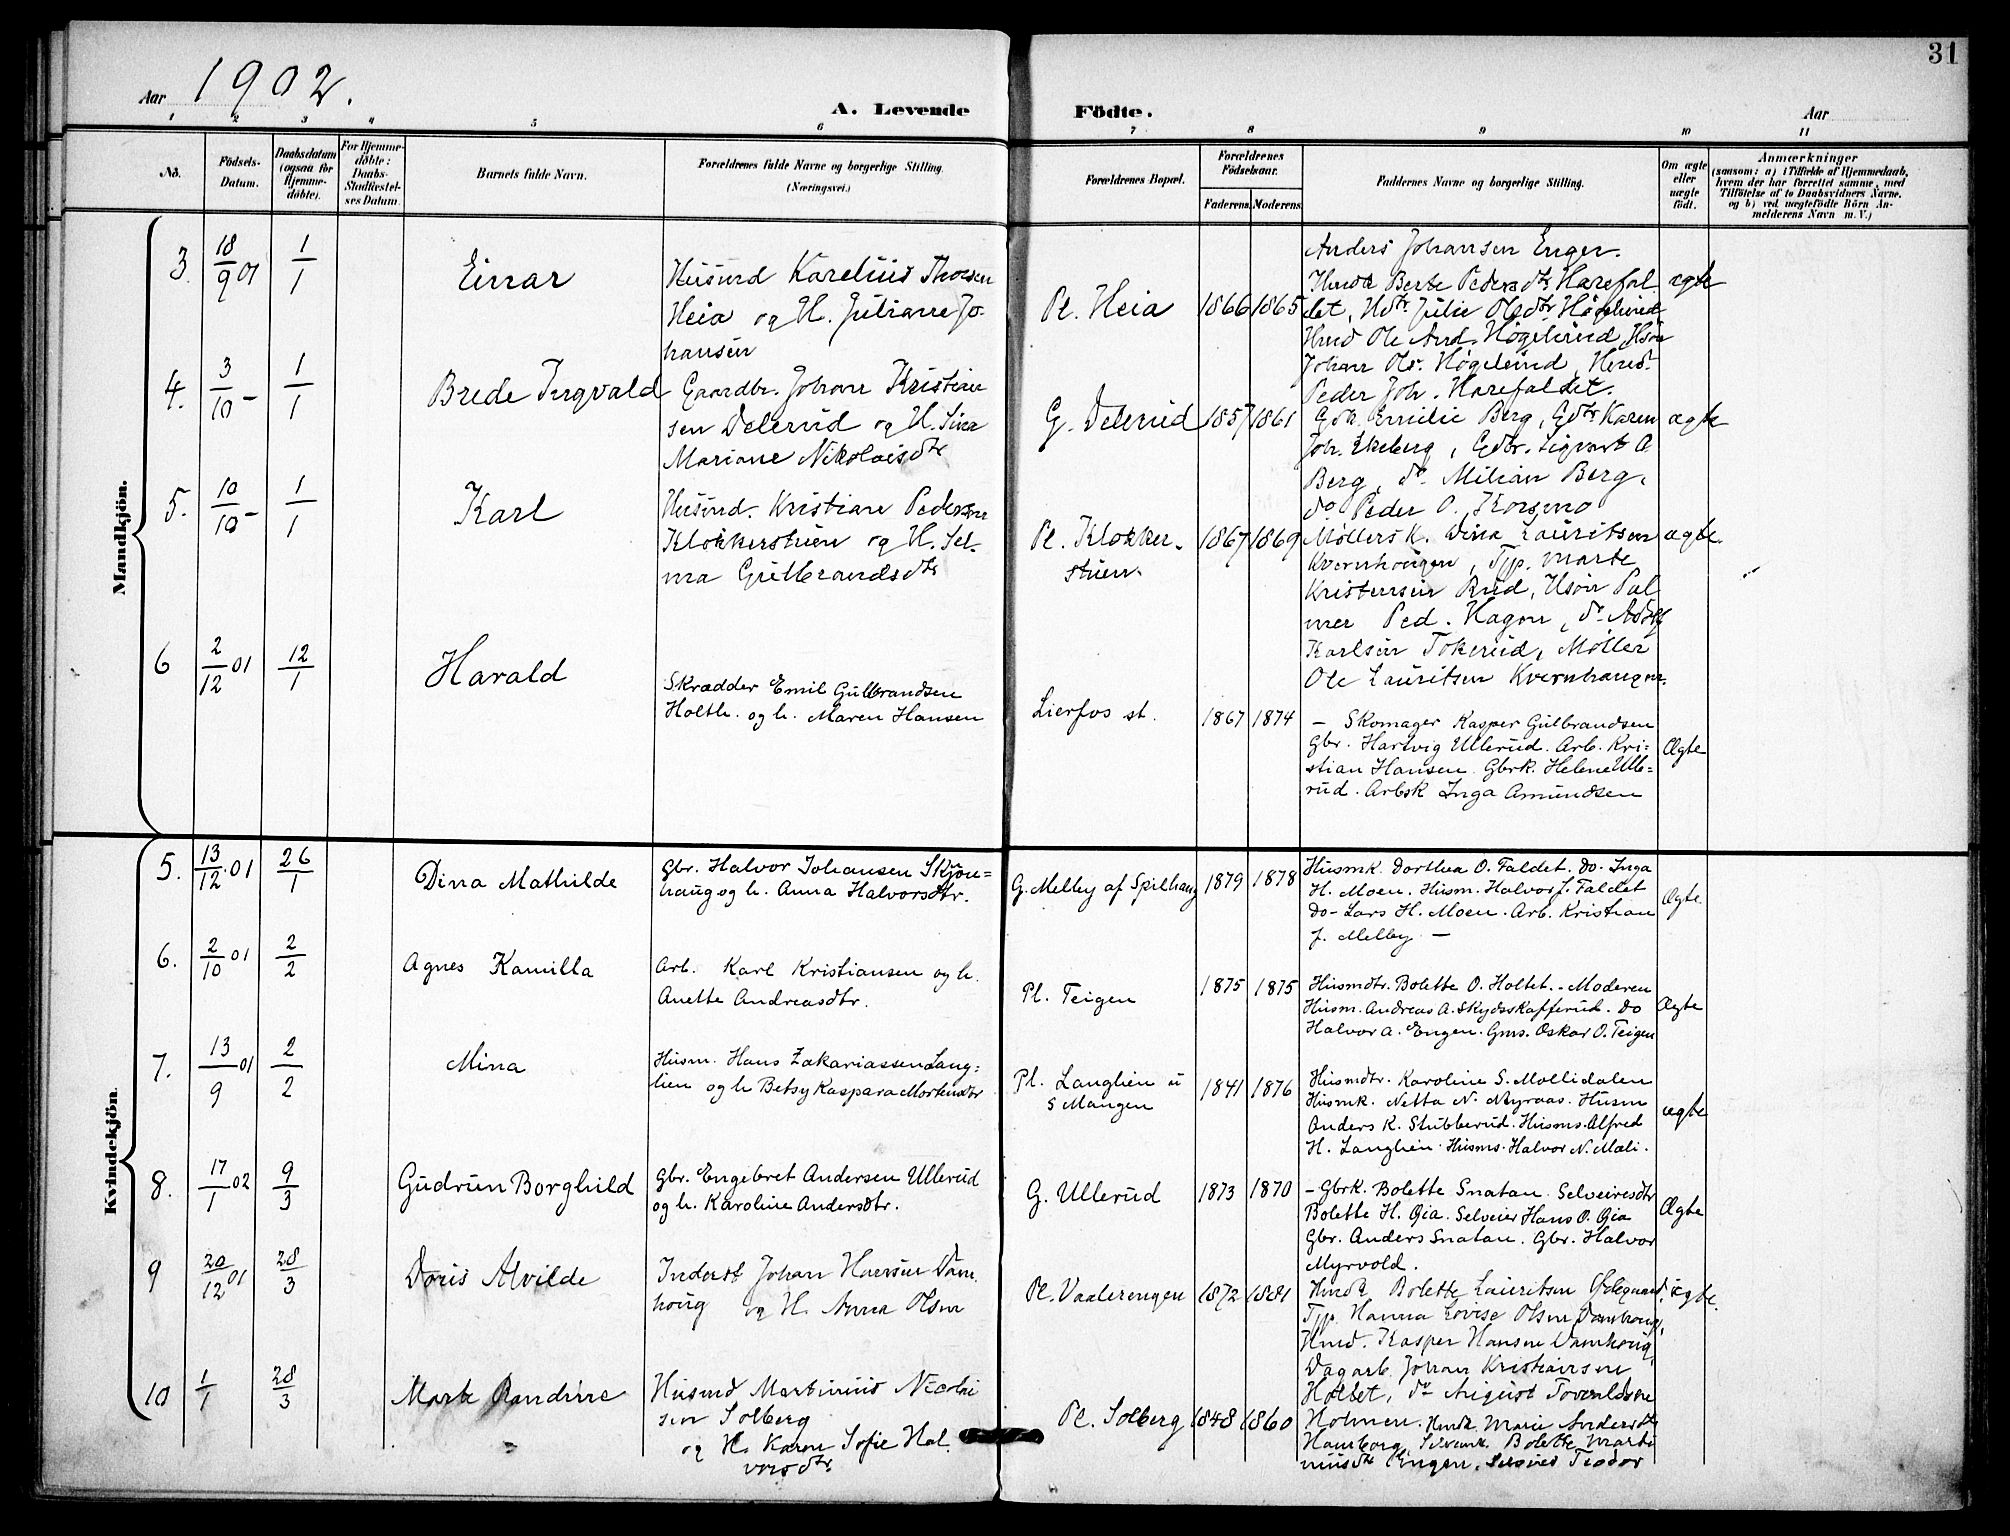 31
Aar 1902.
A. Levende Födte.
Aar
1 2 3 4 5 6 7 8 9 10 11
No.
Födsels-
Datum.
Daabsdatum
(ogsaa for
Hjemme-
döbte).
For Hjemme-
döbte:
Daabs-
Stadfæstel-
ses Datum.
Barnets fulde Navn.
Forældrenes fulde Navne og borgerlige Stilling.
(Næringsvei.)
Forældrenes Bopæl.
Forældrenes
Födselsaar.
Faderens. Moderens.
Faddernes Navne og borgerlige Stilling.
Om ægte
eller
uægte
født.
Anmærkninger
(saasom: a) i Tilfælde af Hjemmedaab,
hvem der har forrettet samme, med
Tilföielse af to Daabsvidners Navne,
og b) ved uægtefödte Börn An-
melderens Navn m. V.)
Mandkjön.
3. 18/9 01 1/1 Einar
Husmd Karelius Thorsen
Heia og H. Juliane Jo-
hansen
Pl. Heia 1866 1865
Anders Johansen Enger.
Hmdk Berte Pedersdtr Harefal
det, Hdtr. Julie Olsdtr Högelund
Hmd Ole And. Högelund, Hsön
Johan Ols. Högelund, Hmd.
Peder Joh. Harefaldet.
ægte
4. 3/10 - 1/1 Brede Ingvald
Gaardbr. Johan Kristian
sen Delerud og H. Lina
Mariane Nikolaisdtr
G. Delerud 1857 1861
Gbk. Emilie Berg, Gdtr Karen
Joh. Ekeberg, Gdbr. Sigvart A
Berg, do. Milian Berg,
do Peder O. Korsmo
ægte
5. 10/10 - 1/1 Karl
Husmd. Kristian Pedersen
Klokkerstuen og H. Sel-
ma Gulbrandsdtr
Pl. Klokker-
stuen.
1867 1869
Møllersk. Dina Lauritsen
Kvernhougen, Tjp. Marte
Kristensen Rud, Hsön Pal
mer Ped. Hagen, do. Adolf
Karlsen Tokerud, Møller
Ole Lauritsen Kvernhaugen.
ægte.
6 2/12 01 12/1 Harald
Skrædder Emil Gulbrandsen
Holth. og h. Maren Hansen
Lierfos st. 1867 1874
- Skomager Kasper Gulbrandsen
Gbr. Hartvig Ullerud. Arb. Kri=
stian Hansen. Gbrk. Helene Ulle=
rud. Arbsk Inga Amundsen
Ægte
Kvindekjön.
5. 13/12 01 26/1 Dina Mathilde
Gbr. Halvor Johansen Skjön=
haug og h. Anna Halvorsdtr.
G. Melby af Spilhaug 1879 1878
Husmk. Dorthea O. Faldet. Do. Inga
H. Moen. Husm. Halvor J. Faldet
Do- Lars H. Moen. Arb. Kristian
J. Melby -
Ægte.
6. 2/10 01 2/2 Agnes Kamilla
Arb. Karl Kristiansen og h.
Anette Andreasdtr.
Pl. Teigen 1875 1875
Husmdtr. Bolette O. Holtet. - Moderen
Husm. Andreas A. Skydsskafferud. Do
Halvor A. Engen. Gms. Oskar O. Teigen
Ægte
7. 13/9 01 2/2 Mina
Husm. Hans Zakariassen Lang=
lien og h Betsy Kaspara Mortensdtr
Pl. Langlien u
S Mangen
1841 1876
Husmdtr. Karoline S. Mollidalen
Husmk. Netta N. Myraas. Husm
Anders K. Stubberud. Husms. Alfred
H. Langlien. Husms. Halvor N. Mali.
ægte
8. 17/1 02 9/3 Gudrun Borghild
Gbr. Engebret Andersen Ullerud
og h. Karoline Andersdtr.
G. Ullerud 1873 1870
- Gbrk. Bolette Snatan. Selveiersdtr
Bolette H. Gia. Selveier Hans O. Gia
Gbr. Anders Snatan. Gbr. Halvor
Myrvold.
Ægte
9 20/12 01 28/3 Doris Alvilde
Inderst Johan Hansen Dam
houg og H. Anna Olsen
Pl. Vaalerengen 1872 1881
Hmdk Bolette Lauritsen Ødegaard,
Tjp. Hanna Lovise Olsen Damhoug,
Hmd. Kasper Hansen Damhoug,
Dagarb. Johan Kristiansen
Holtet, do. August
Holmen.
uægte.
10 1/1 28/3 Marte Randine
Husmd Martinius Nicolai
sen Solberg
og H. Karen Sofie Hal
vorsdtr.
Pl. Solberg 1848 1860
Hmdk. Marie Andersdtr
Hamborg, Bolette Marti
niusdtr Engen, Teodor